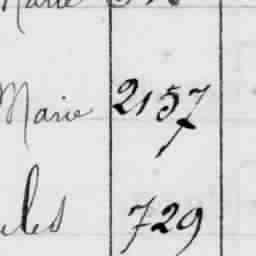 Marie
Marie 2157
729